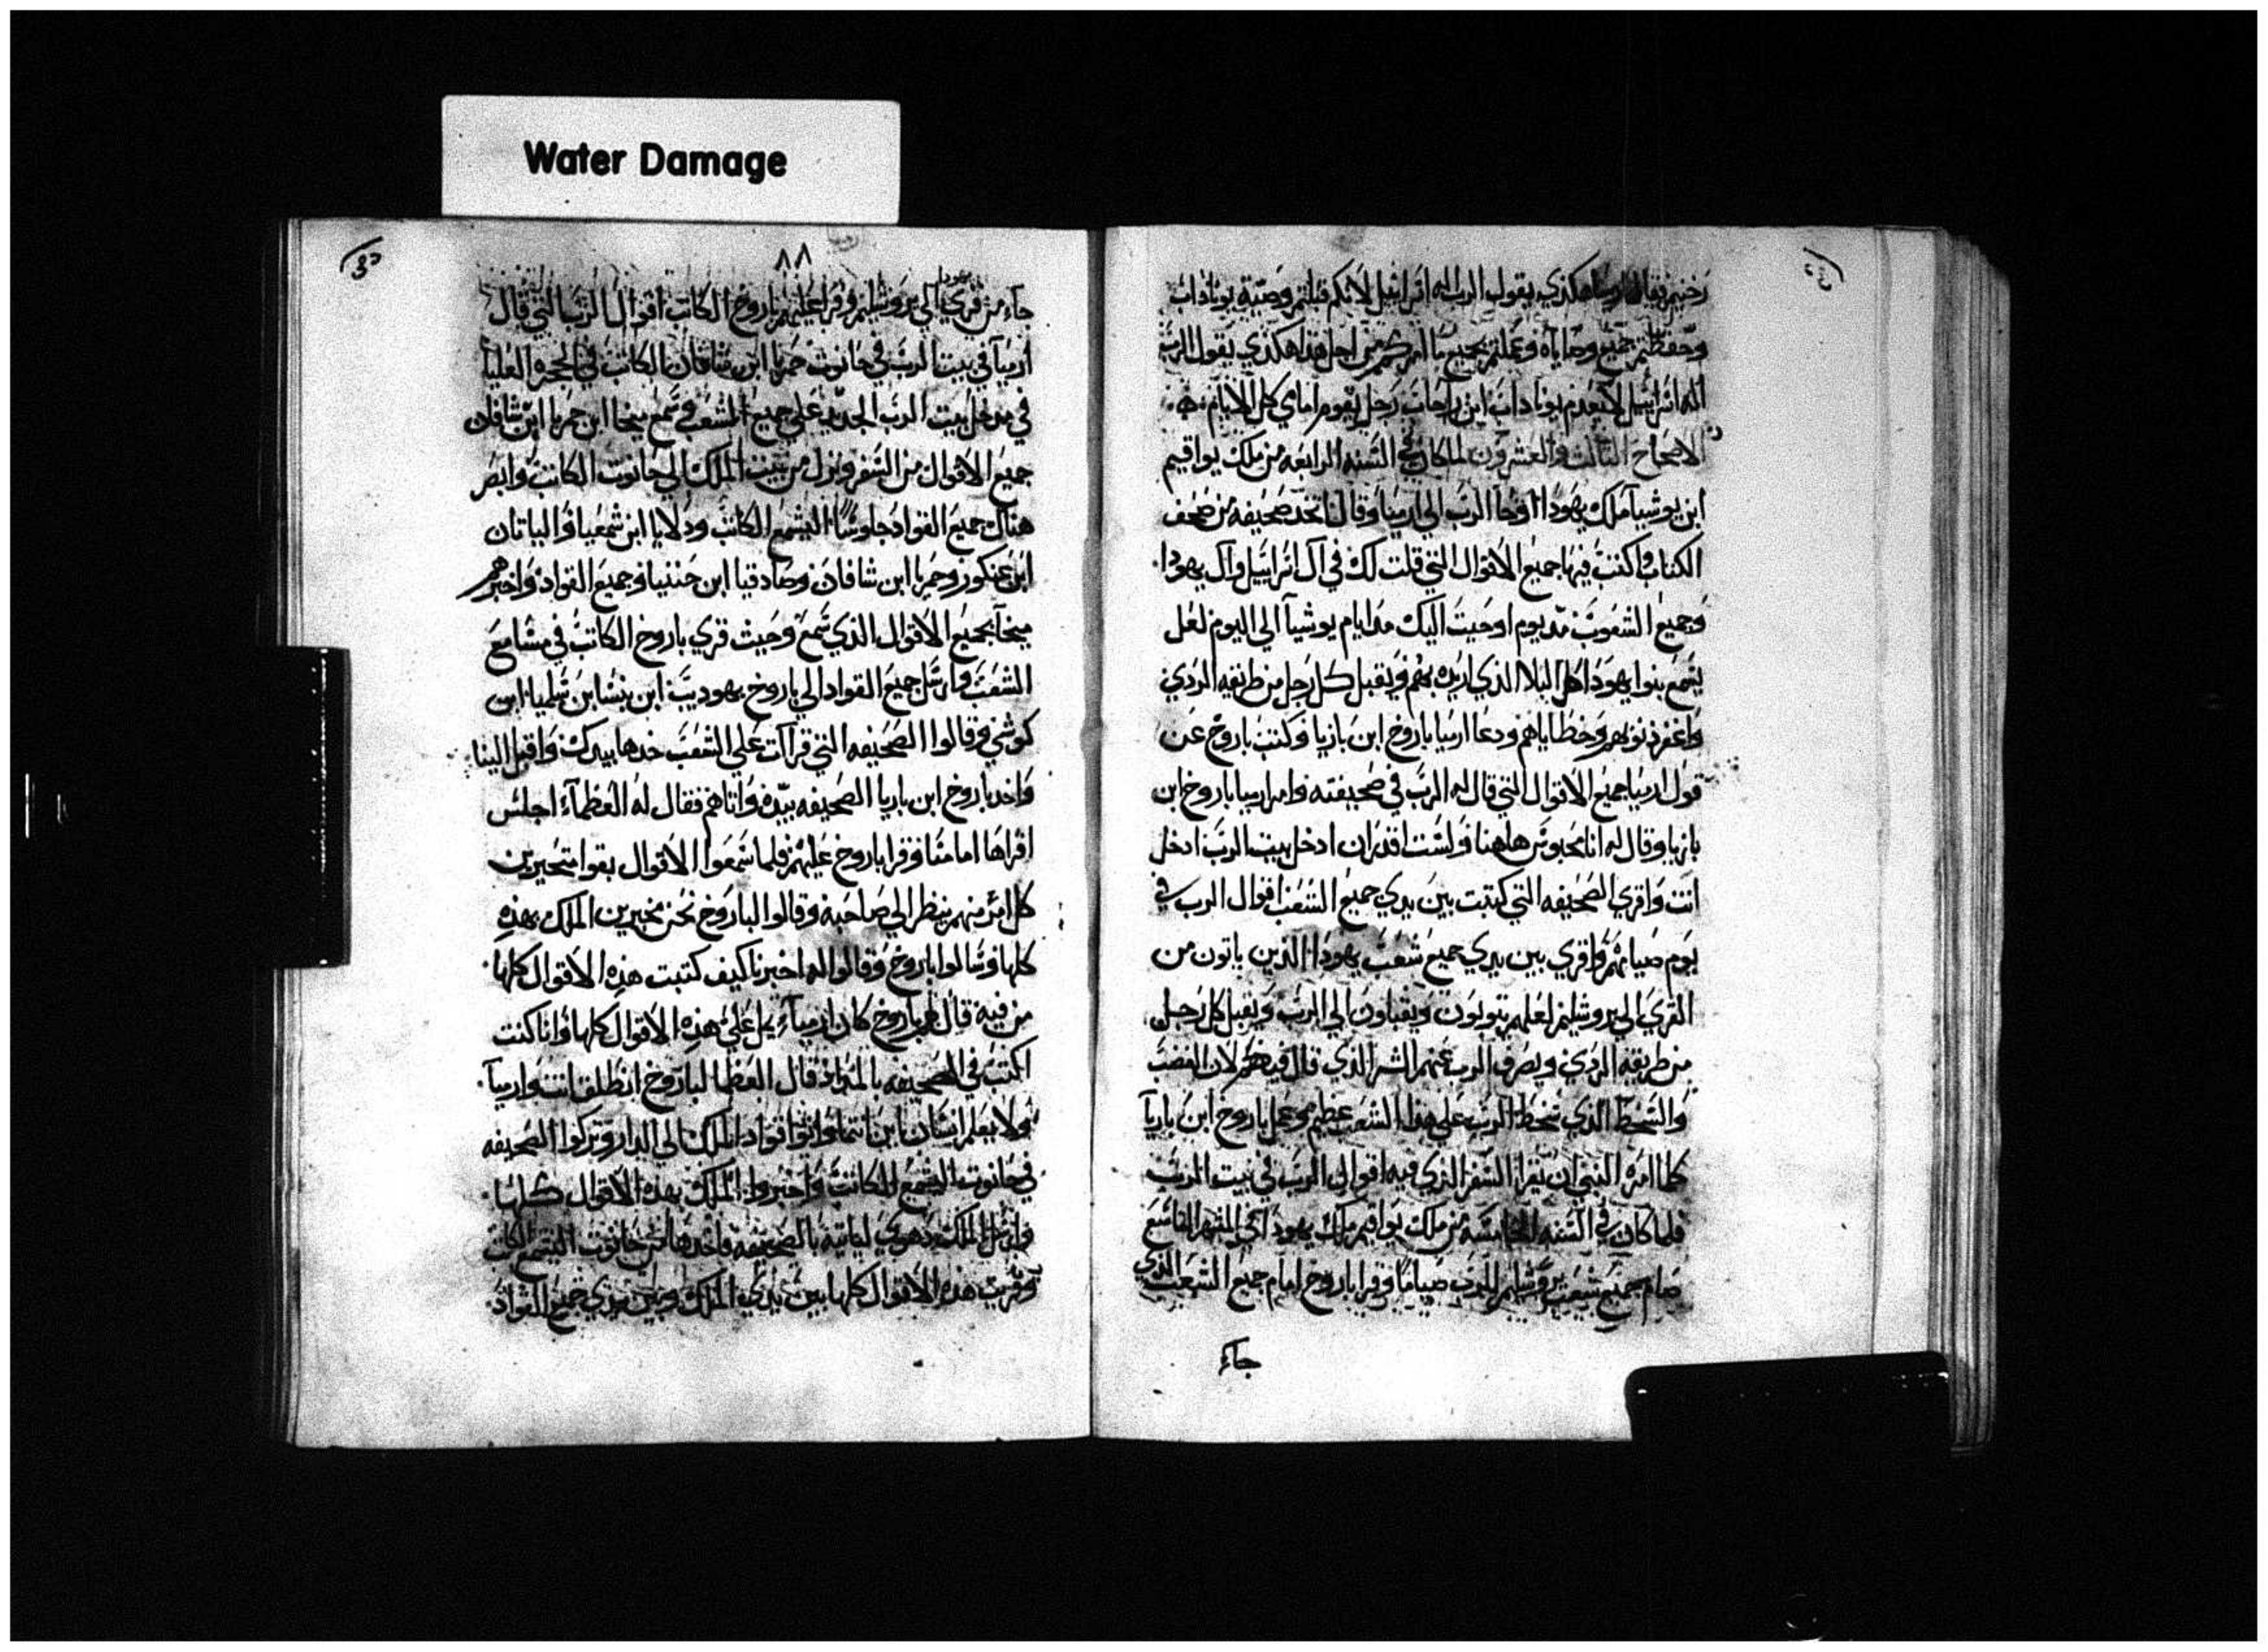 Water Damage
رخبيم فقال ارميا هكذي يقول الرب اله اسراييل لانكم قبلتم وصية يوناداب
وحفظتم جميع وصاياه وعملتم بجميع ما امركم من اجل هذا هكذي يقول الرب
اله اسراييل لا يعدم يوناداب ابن راحاب رجل يقوم امامي كل الايام
الاصحاح الثالث والعشرون لما كان في السنه الرابعه من ملك يواقيم
ابن يوشيا ملك يهودا اوحا الرب الي ارميا وقال اتخد صحيفه من صحف
الكتاب واكتب فيها جميع الاقوال التي قلت لك في آل اسراييل وآل يهودا
وجميع الشعوب مد يوم اوحيت اليك مد ايام يوشيا الي اليوم لعل
يسمع بنوا يهودا كل البلا الذي اريده بهم ويقبل كل رجل من طريقه الردي
واغفر ذنوبهم وخطاياهم ودعا ارميا باروخ ابن باريا وكتب باروخ عن
قول ارميا جميع الاقوال التي قال له الرب في صحيفته وامر ارميا باروخ ابن
باريا وقال له انا محبوس هاهنا ولست اقدر ان ادخل بيت الرب ادخل
انت واقري الصحيفه التي كتبت بين يدي جميع الشعب اقوال الرب في
يوم صيامهم واقري بين يدي جميع شعب يهودا الذين ياتون من
القري الي يروشليم لعلهم يتوبون ويقبلون الي الرب ويقبل كل رجل
من طريقه الردي ويصرف الرب عنهم الشر الذي قال فيهم لان الغضب
والسخط الذي سخط الرب علي هذا الشعب عظيم وعمل باروخ ابن باريا
كلما امره النبي ان يقرا السفر الذي فيه اقوال الرب في بيت الرب
فلما كان في السنه الخامسه من ملك يواقيم ملك يهودا في الشهر التاسع
صام جميع شعب يروشليم للرب صياما وقرا باروخ امام جميع الشعب الذي
جآء
٨٨
يهودا
جآء من قري الي يروشليم وقرا عليهم باروخ الكاتب اقوال الرب التي قال
ارميا في بيت الرب في حانوت جمريا ابن شافان الكاتب في الحجره العليا
في مدخل بيت الرب الجديد علي جميع الشعب وسمع ميخا ابن جمريا ابن شافان
جميع الاقوال من السفر ونزل من بيت الملك الي حانوت الكاتب وابصر
هناك جميع القواد جلوسًا اليشمع الكاتب ودلايا ابن شمعيا والياتان
ابن عنكور وجمريا ابن شافان وصادقيا ابن حننيا وجميع القواد واخبرهم
ميخا بجميع الاقوال الذي سمع وحيث قري باروخ الكاتب في مسامع
الشعب وارسل جميع القواد الي باروخ يهوديب ابن بنشا بن شلميا ابن
كوشي وقالوا الصحيفه التي قرات علي الشعب خدها بيدك واقبل الينا
واخد باروخ ابن باريا الصحيفه بيده واتاهم فقال له العظمآء اجلس
اقراها امامنا وقرا باروخ عليهم فلما سمعوا الاقوال بقوا متحيرين
كل امر منهم ينظر الي صاحبه وقالوا الباروخ نحن نخبرين الملك بهذه
كلها وسالوا باروخ وقالوا له اخبرنا كيف كتبت هذه الاقوال كلها
من فيه قال لهم باروخ كان ارميآء يمل علي هذه الاقوال كلها وانا كنت
اكتب في الصحيفه بالمداد قال العظما لباروخ انطلق انت وارميا
ولا يعلم انسان اين انتما واتوا قواد الملك الي الدار وتركوا الصحيفه
في حانوت اليشمع الكاتب واخبروا الملك بهذه الاقوال كلها
وارسل الملك يهودي لياتيه بالصحيفه فاخدها من حانوت اليشمع الكاتب
وقريت هذه الاقوال كلها بين يدي الملك وبين يدي جميع القواد